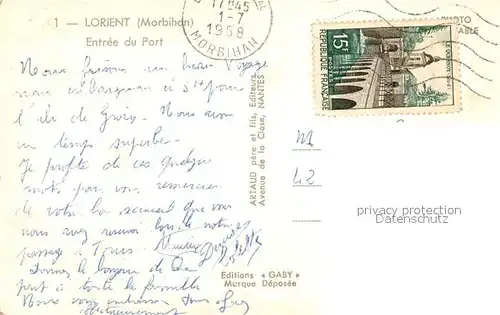 1 — LORIENT (Morbihan)
Entrée du Port
17H45
1-7
1958
MORBIHAN
PHOTO
ABLE
15F
RÉPUBLIQUE FRANÇAISE
POSTES
Nous faisons un beau Voyage
nous embarquons à pour
l'île de Groix. Nous avons
un temps superbe.
Je profite de ces quelques
mots pour vous remercier
de votre bon accueil que vous
nous avez réservé lors de notre
passage à Tours.
Donnez le bonjour de
part à toute la famille
Nous vous embrassons tous
affectueusement
ARTAUD père et fils, Editeurs
Avenue de la Close, NANTES
Editions « GABY »
Marque Déposée
privacy protection
Datenschutz